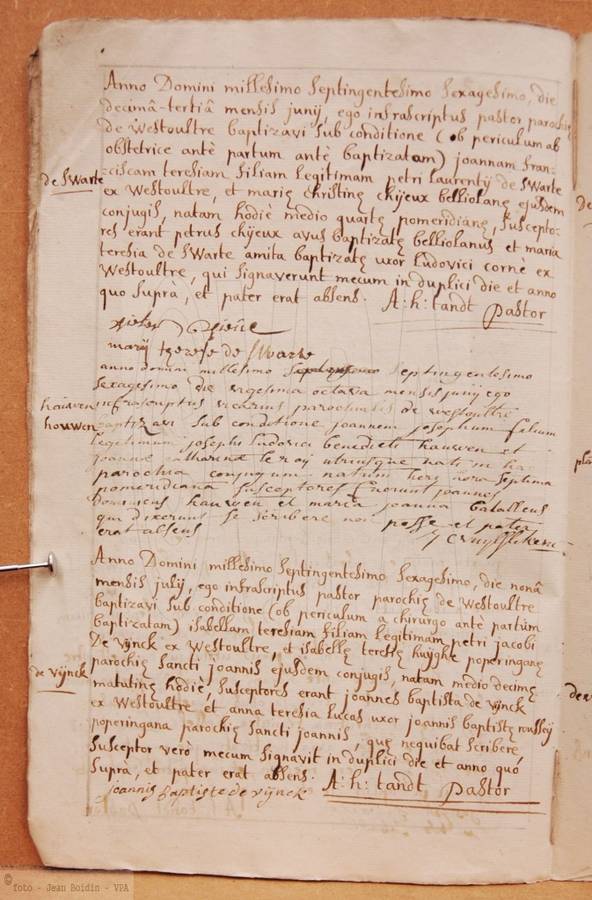 Anno Domini millesimo septingentesimo sexagesimo, die
decimâ-tertiâ mensis junij, ego infrascriptus pastor parochię
de Westoultre baptizavi sub conditione (ob periculum ab
obstetrice antè partum antè baptizatam) joannam fran=
de SWarte
=ciscam teresiam filiam legitimam petri laurentij de SWarte
ex Westoultre, et marię Christinę Chijeux belliolanę ejusdem
conjugis, natam hodiè medio quartę pomeridianę, suscepto=
res erant petrus Chijeux avus baptizatę belliolanus et maria
teresia de SWarte amita baptizatę uxor ludovici cornè ex
Westoultre, qui signaverunt mecum in duplici die et anno
quo suprà, et pater erat absens. A: h: tandt Pastor
marij therese de Swarte
anno domini millesimo septingentesimo
sexagesimo die vigesima octava mensis junij ego
infrascriptus vicarius parochialis de westoultre
houwen
baptizavi sub conditione joannem josephum filium
legitimum josephi ludovici benedicti houwen et
joannæ catharinæ le roij utriusque nati in hac
parochia conjugum natum heri hora septima
pomeridiana susceptores fuerunt joannes
dominicus houwen et maria joanna
qui dixerunt se scribere non posse et pater
erat absens
Anno Domini millesimo septingentesimo sexagesimo, die nonâ
mensis julij, ego infrascriptus pastor parochię de Westoultre
baptizavi sub conditione (ob periculum a chirurgo antè partum
baptizatam) isabellam teresiam filiam legitimam petri jacobi
de vÿnck
De vÿnck ex Westoultre, et isabellę teresię huÿghe poperinganę
parochię sancti joannis ejusdem conjugis, natam medio decimę
matutinę hodiè, susceptores erant joannes baptista de vÿnck
ex Westoultre et anna teresia luccas uxor joannis baptistę
poperingana parochię sancti joannis, quę nequibat scribere
susceptor verò mecum signavit in duplici die et anno quô
suprà, et pater erat absens. A: h: tandt Pastor
joannis baptiste de vijnck
© foto - Jean Boidin - VPA